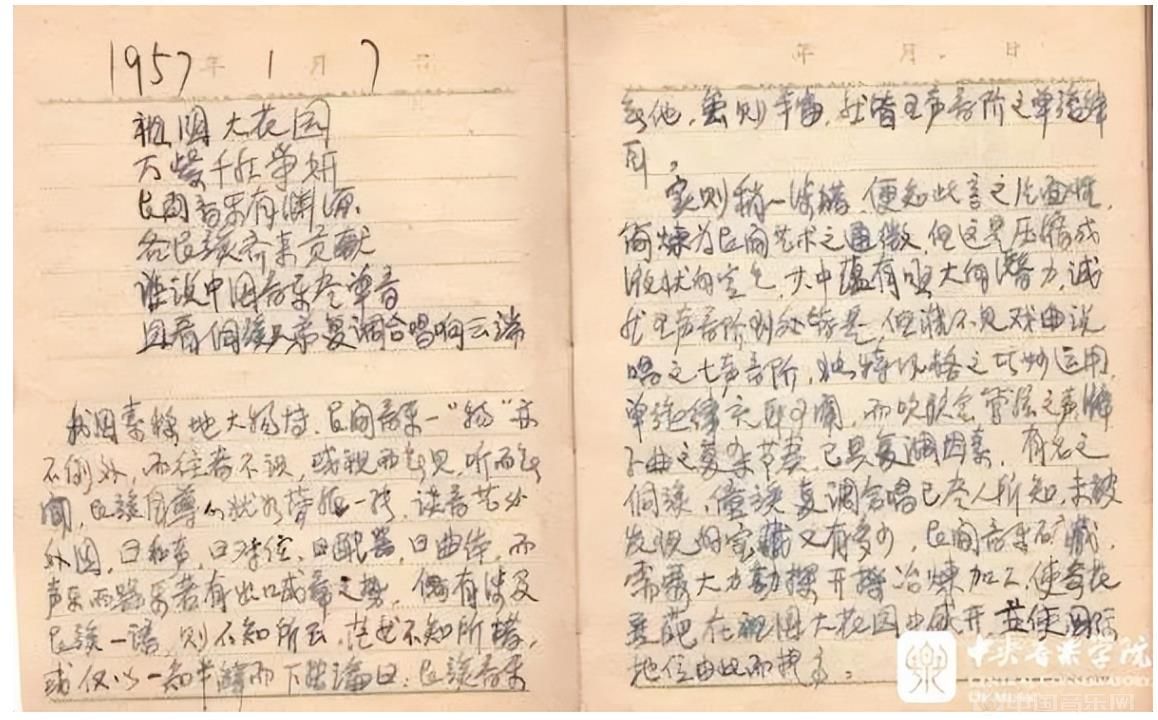 1957年1月7日
祖国大花园
万紫千红争妍
民间音乐有渊源
各民族齐来贡献
谁说中国音乐尽单音
且看侗族兄弟复调合唱响云端
我国素称地大物博,民间音乐一“物”亦
不例外,而往者不识,或视而不见,听而不
闻,民族自尊心扫地,谈音言必
外国,曰和声,曰对位,曰配器,曰曲体,而
声乐而器乐若有出口成章之势,偶有涉及
民族一语,则不知所云,茫然不知所措,
或仅以一知半解而下结论曰:民族音乐
年 月 日
无他,虽则丰富,然皆五声音阶之单旋律
耳。
实则稍一涉猎,便知此言之片面性,
简炼为民间艺术之特徵,但这是压缩成
液状的空气,其中蕴有巨大的潜力,诚
然五声音阶到处皆是,但谁不见戏曲说
唱之七声音阶,独特风格之巧妙运用,
单旋律亦所习闻,而吹歌会管弦之声
曲之复杂节奏,已具复调因素,有名之
侗族,僮族复调合唱已尽人所知,未被
发现的宝藏又有多少,民间音乐矿藏,
需要大力勘探开掘冶炼加工,使奇花
异葩在祖国大花园中盛开,并使国际
地位由此而提高。
中央音乐学院
中国音乐网